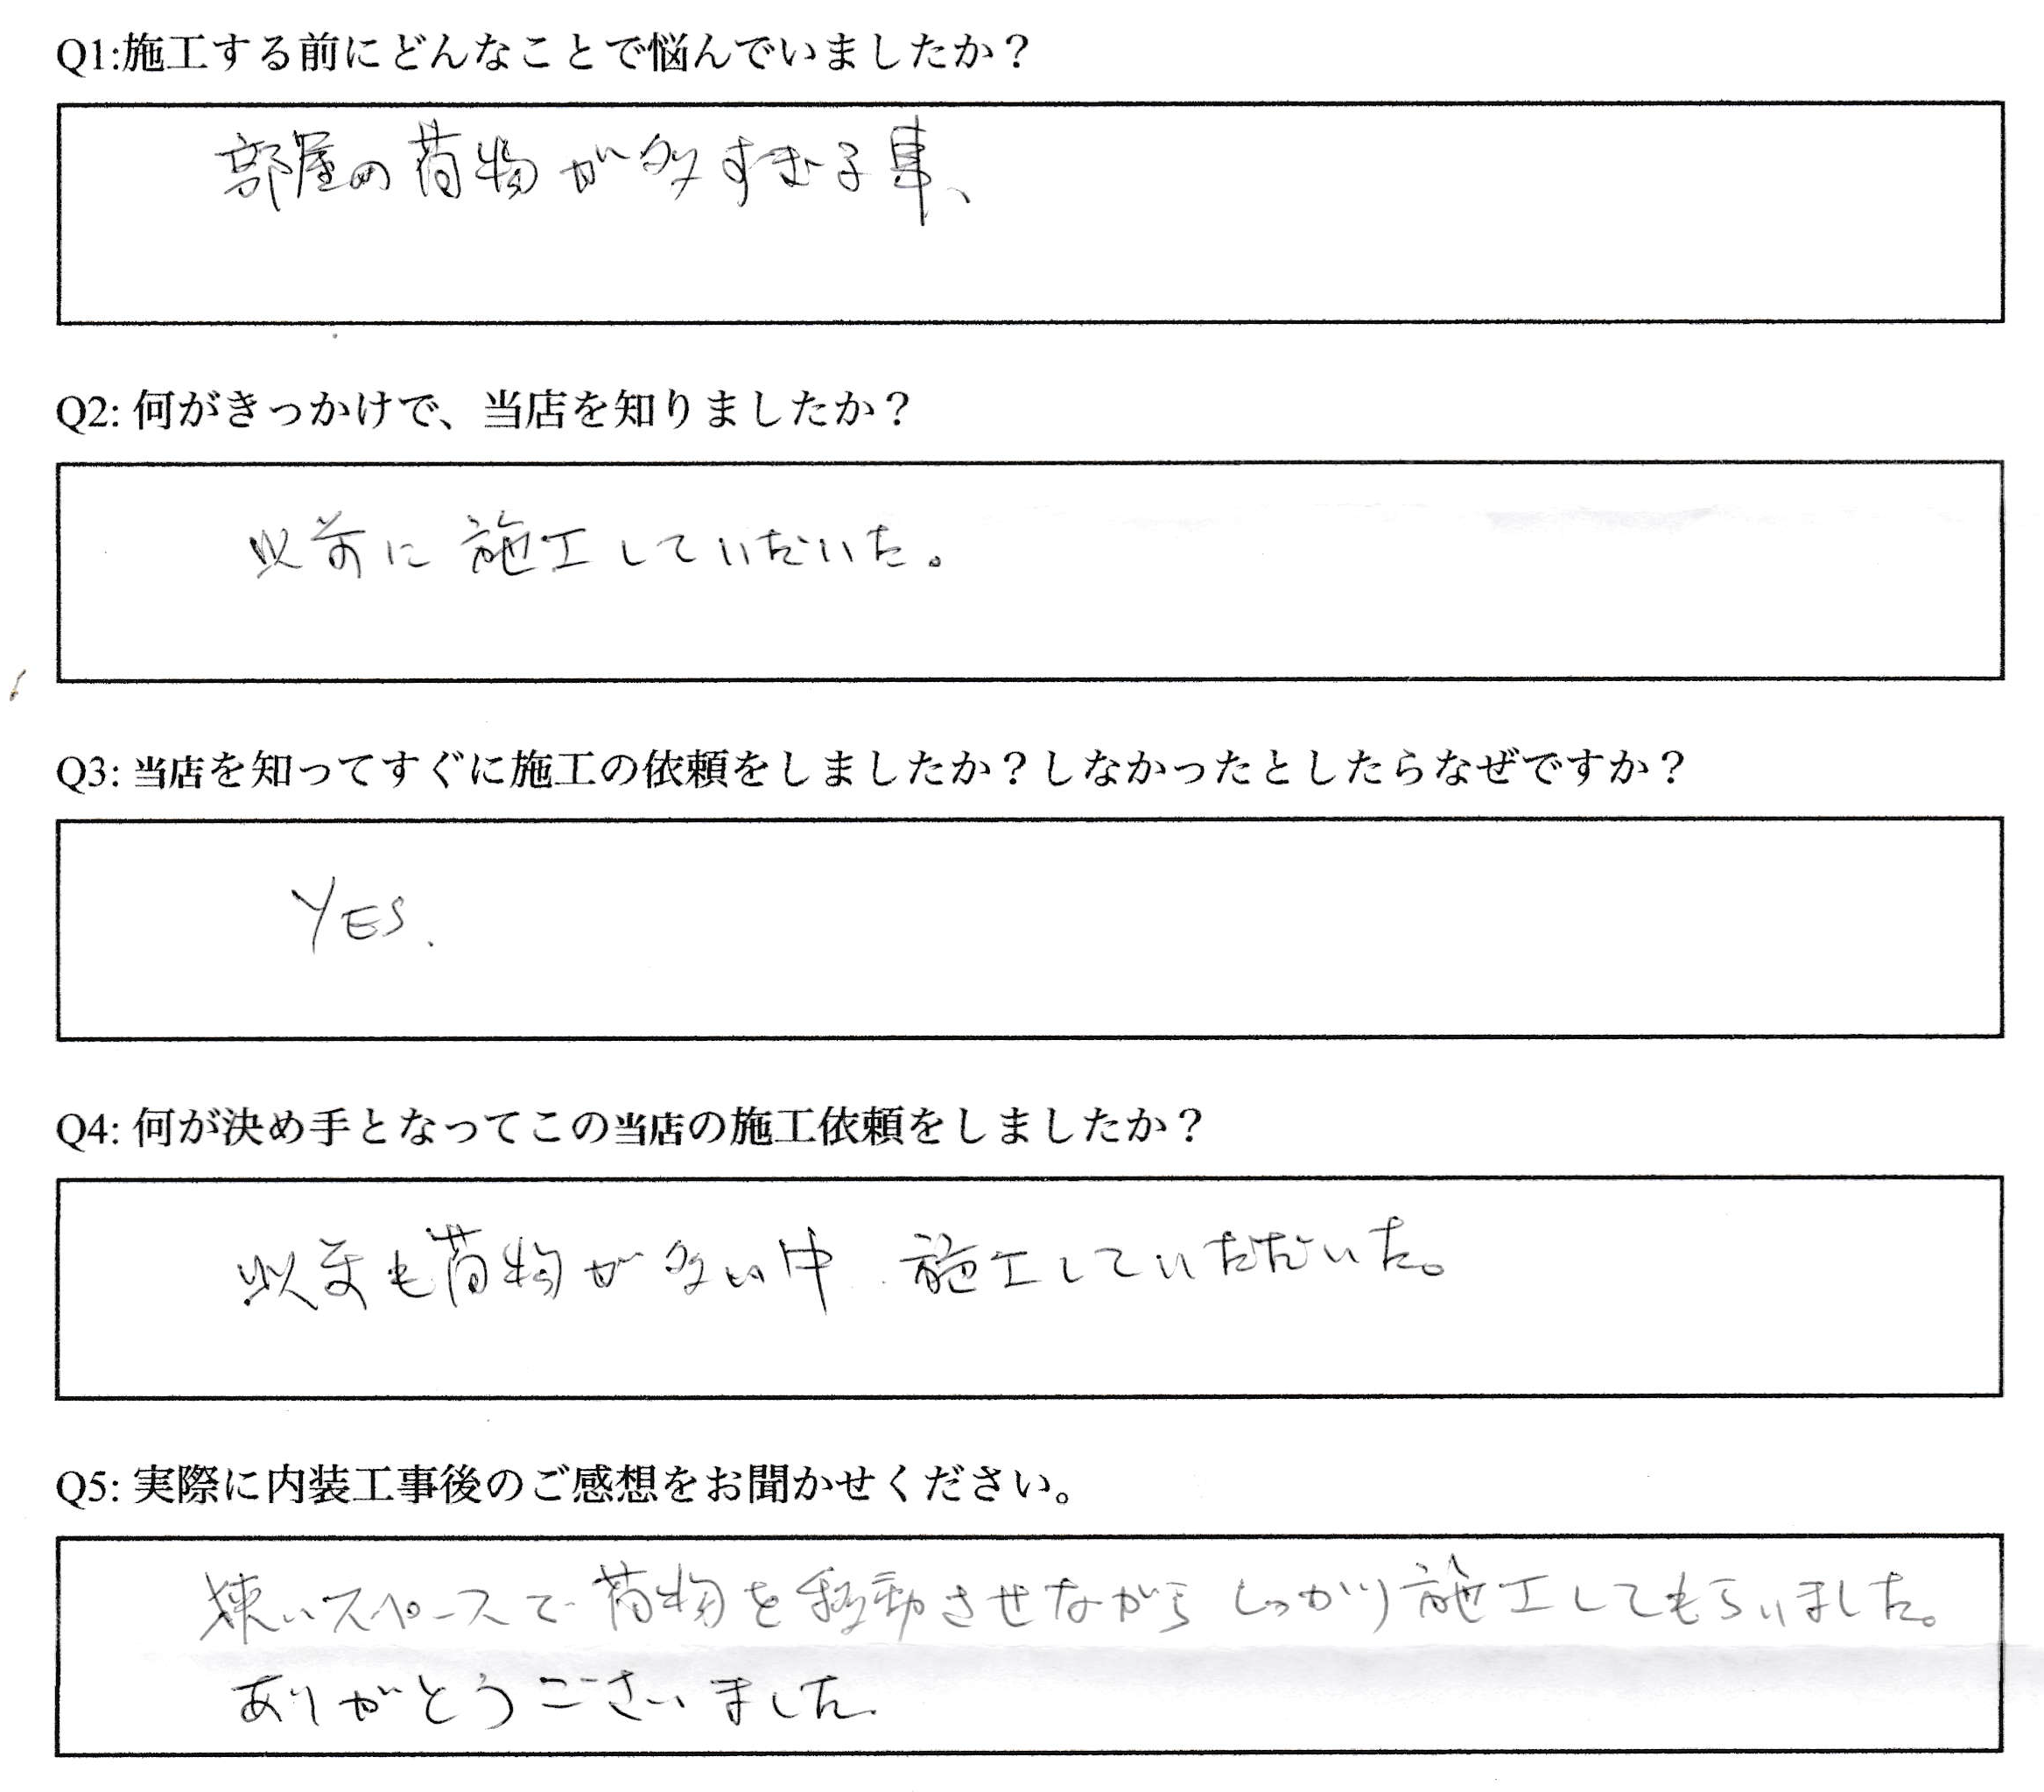 Q1:施工する前にどんなことで悩んでいましたか？
部屋の荷物が多すぎる事、
Q2: 何がきっかけで、当店を知りましたか？
以前に施工していただいた。
Q3: 当店を知ってすぐに施工の依頼をしましたか？しなかったとしたらなぜですか？
YES.
Q4: 何が決め手となってこの当店の施工依頼をしましたか？
以前も荷物が多い中 施工していただいた。
Q5: 実際に内装工事後のご感想をお聞かせください。
狭いスペースで荷物を移動させながらしっかり施工してもらいました。
ありがとうございました.